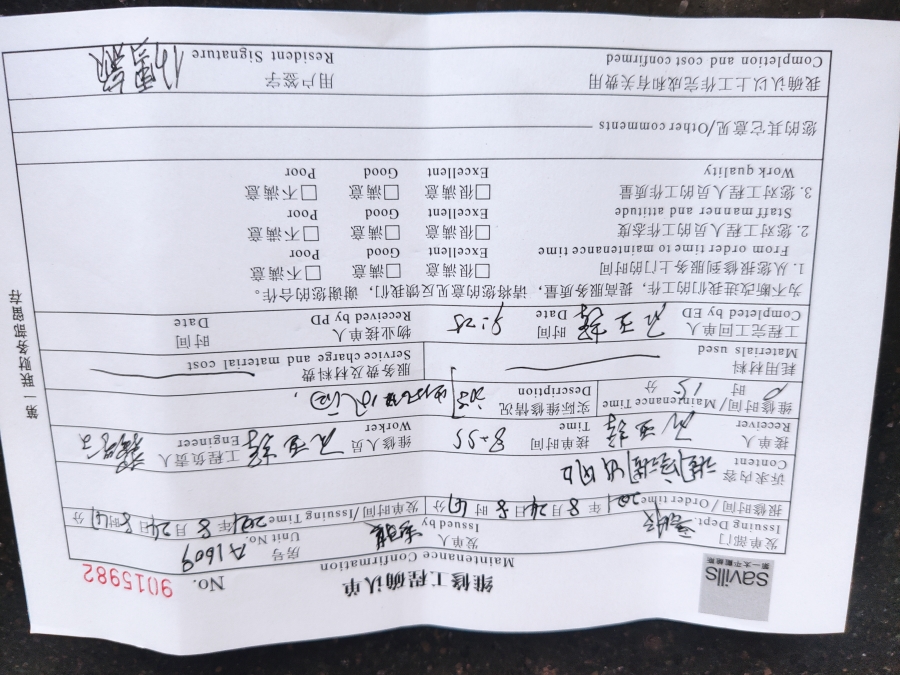 savills
第一太平戴维斯
维修工程确认单
Maintenance Confirmation
No. 9015982
发单部门
Issuing Dept.
发单人
Issued by
房号
Unit No. A1609
报修时间 / Order time 2021 年 8 月 24 日 8 时 分
发单时间 /Issuing Time 2021 年 8 月 24 日 8 时 分
诉求内容
Content
接单人
Receiver
接单时间
Time 8-55
维修人员
Worker
工程负责人
Engineer
维修时间/Maintenance Time
时 15 分
实际维修情况
Description
耗用材料
Materials used
服务费及材料费
Service charge and material cost
工程完工回单人
Completed by ED
时间
Date 9:25
物业接单人
Received by PD
时间
Date
为不断改进我们的工作，提高服务质量，请将您的意见反馈我们，谢谢您的合作。
1. 从您报修到服务上门的时间 □很满意 □满意 □不满意
From order time to maintenance time Excellent Good Poor
2. 您对工程人员的工作态度 □很满意 □满意 □不满意
Staff manner and attitude Excellent Good Poor
3. 您对工程人员的工作质量 □很满意 □满意 □不满意
Work quality Excellent Good Poor
您的其它意见/Other comments
我确认以上工作完成和有关费用
Completion and cost confirmed
用户签字
Resident Signature
第一联财务部留存